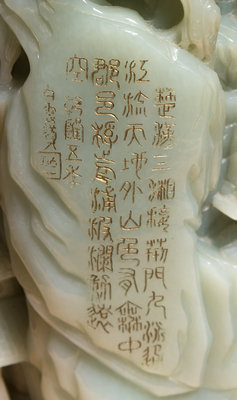 楚塞三湘接荊門九派通
江流天地外山色有無中
郡邑浮前浦波瀾動遠
空